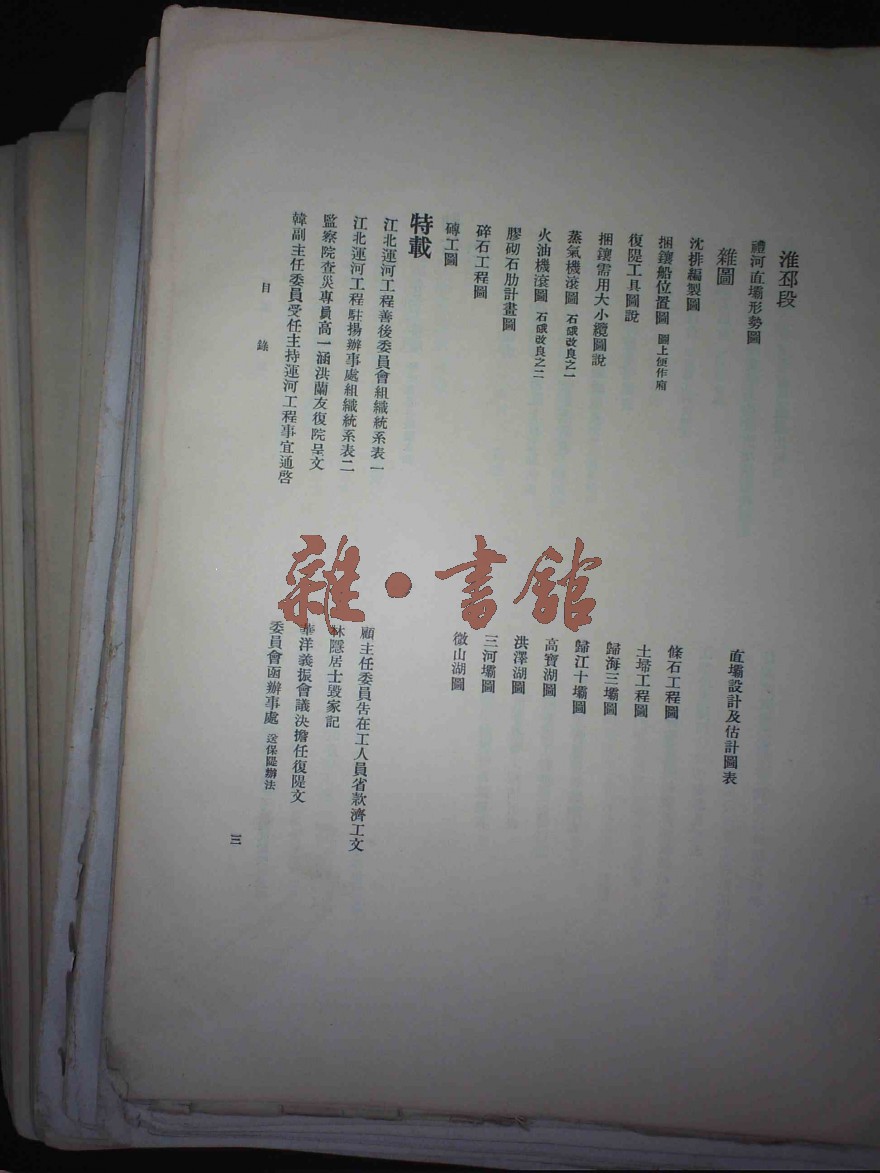 淮邳段
禮河直壩形勢圖
直壩設計及估計圖表
雜圖
沈排編製圖
條石工程圖
捆鑲船位置圖 圖上便作廂
土埽工程圖
復隄工具圖說
歸海三壩圖
捆鑲需用大小纜圖說
歸江十壩圖
蒸氣機滾圖 石硪改良之一
高寶湖圖
火油機滾圖 石硪改良之二
洪澤湖圖
膠砌石肋計畫圖
三河壩圖
碎石工程圖
微山湖圖
磚工圖
特載
江北運河工程善後委員會組織統系表一
顧主任委員告在工人員省款濟工文
江北運河工程駐揚辦事處組織統系表二
林隱居士毀家記
監察院查災專員高一涵洪蘭友復院呈文
華洋義振會議決擔任復隄文
韓副主任委員受任主持運河工程事宜通啓
委員會函辦事處 送保隄辦法
目錄
三
雜·書館